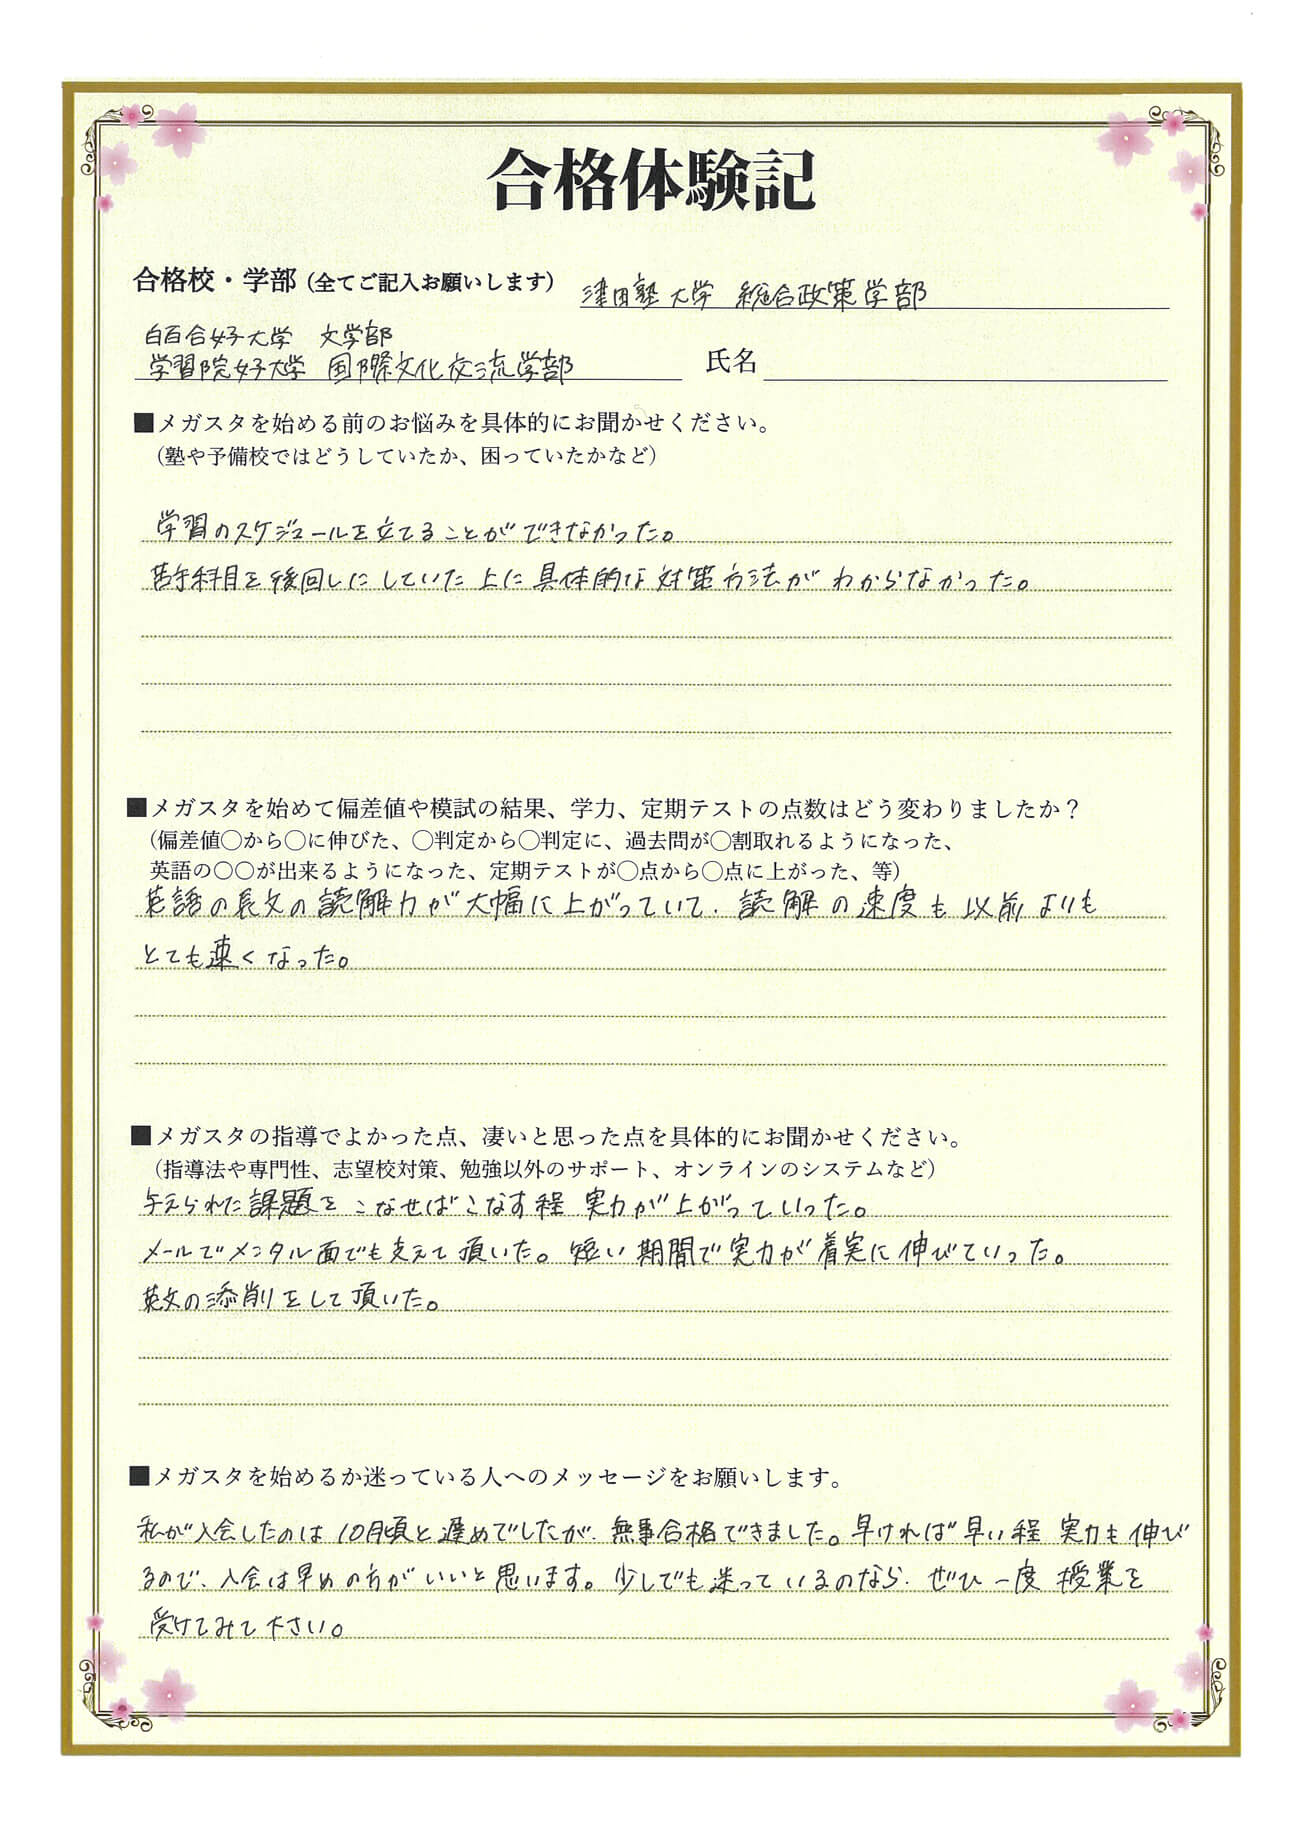 合格体験記
合格校・学部（全てご記入お願いします） 津田塾大学 総合政策学部
白百合女子大学 文学部
学習院女子大学 国際文化交流学部 氏名
■メガスタを始める前のお悩みを具体的にお聞かせください。
（塾や予備校ではどうしていたか、困っていたかなど）
学習のスケジュールを立てることができなかった。
苦手科目を後回しにしていた上に具体的な対策方法がわからなかった。
■メガスタを始めて偏差値や模試の結果、学力、定期テストの点数はどう変わりましたか？
（偏差値〇から〇に伸びた、〇判定から〇判定に、過去問が〇割取れるようになった、
英語の〇〇が出来るようになった、定期テストが〇点から〇点に上がった、等）
英語の長文の読解力が大幅に上がっていて、読解の速度も以前よりも
とても速くなった。
■メガスタの指導でよかった点、凄いと思った点を具体的にお聞かせください。
（指導法や専門性、志望校対策、勉強以外のサポート、オンラインのシステムなど）
与えられた課題をこなせばこなす程 実力が上がっていった。
メールでメンタル面でも支えて頂いた。短い期間で実力が着実に伸びていった。
英文の添削をして頂いた。
■メガスタを始めるか迷っている人へのメッセージをお願いします。
私が入会したのは10月頃と遅めでしたが、無事合格できました。早ければ早い程 実力も伸び
るので、入会は早めの方がいいと思います。少しでも迷っているのなら、ぜひ一度 授業を
受けてみて下さい。